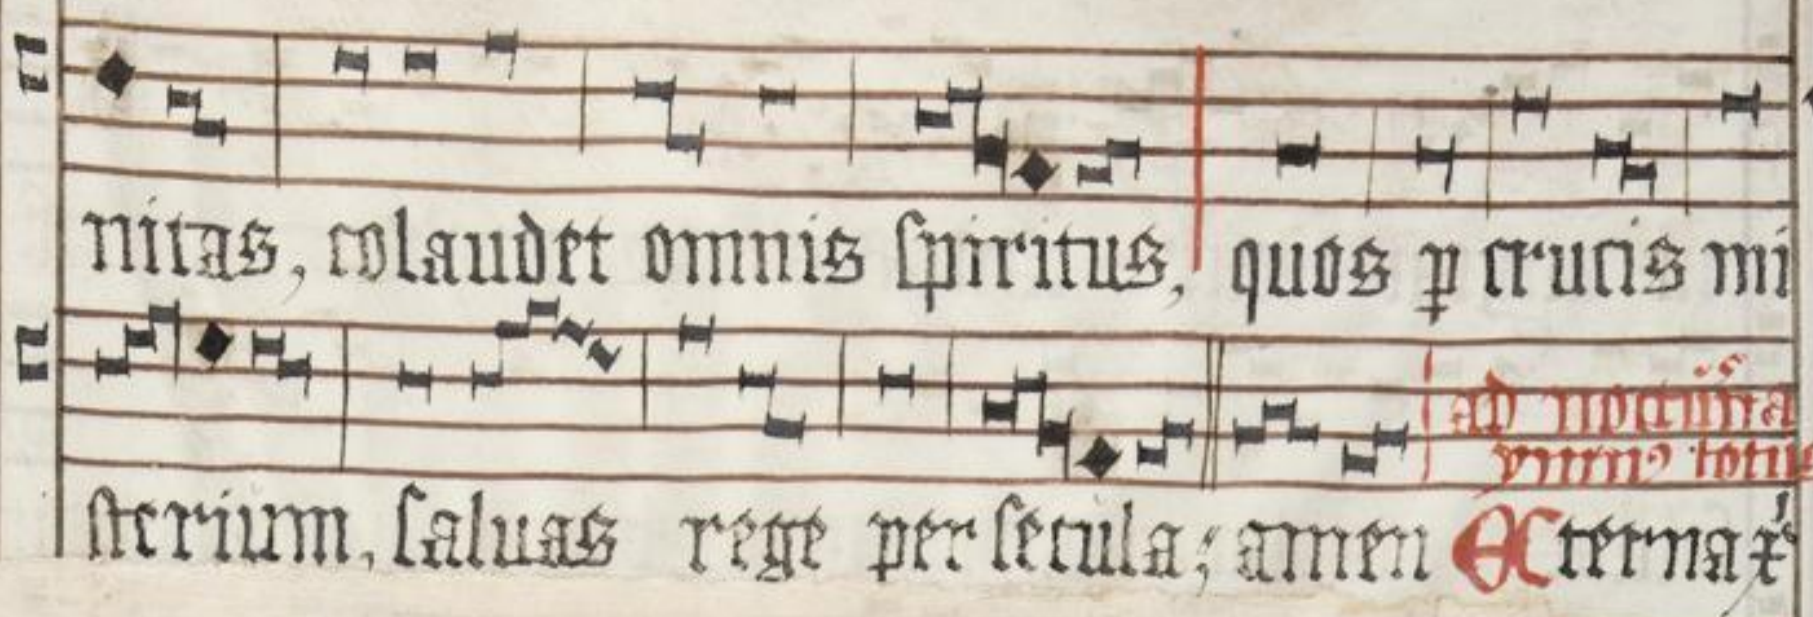 nitas, colaudet omnis spiritus, quos ꝑ crucis mi
ad nocturna
ymnꝰ totiꝰ
sterium, saluas rege per secula; amen Eterna xͥ